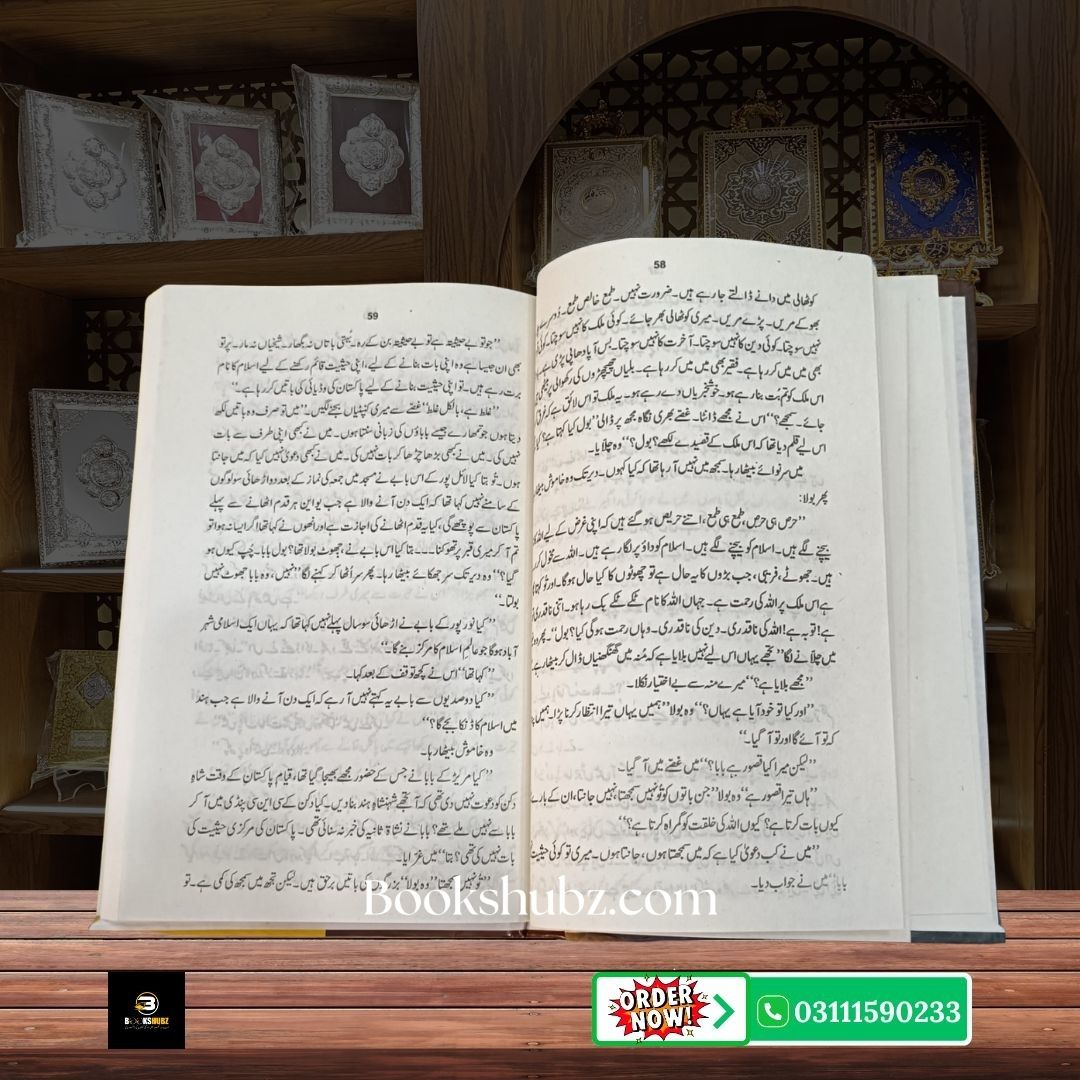 58
کوٹھالی میں دانے ڈالتے جا رہے ہیں۔ ضرورت نہیں۔ طمع خالص طمع۔
بھوکے مریں۔ پڑے مریں۔ میری کوٹھالی بھر جائے۔ کوئی ملک کا نہیں سوچتا۔ کوئی
نہیں سوچتا۔ کوئی دین کا نہیں سوچتا۔ آخرت کا نہیں سوچتا۔ بس آپا دھاپی پڑی ہے۔
بھی میں میں کر رہا ہے۔ فقیر بھی میں میں کر رہا ہے۔ بلیاں چھیچھڑوں کی رکھوالی پر
اس ملک کو جنت بنا رہے ہو۔ خوشخبریاں دے رہے ہو۔ یہ ملک تو اس لائق ہے کہ غرق
جائے۔ سمجھے؟“ اس نے مجھے ڈانٹا۔ غصے بھری نگاہ مجھ پر ڈالی ”بول کیا کہتا ہے؟
اس لیے قلم دیا تھا کہ اس ملک کے قصیدے لکھے؟ بول؟“ وہ چلایا۔
میں سر نوائے بیٹھا رہا۔ سمجھ میں نہیں آ رہا تھا کہ کیا کہوں۔ دیر تک وہ خاموش بیٹھا
پھر بولا:
”حرص ہی حرص، طمع ہی طمع، اتنے حریص ہو گئے ہیں کہ اپنی غرض کے لیے اللہ کو
بیچنے لگے ہیں۔ اسلام کو بیچنے لگے ہیں۔ اسلام کو داؤ پر لگا رہے ہیں۔ اللہ سے
ہیں۔ جھوٹے، فریبی، جب بڑوں کا یہ حال ہے تو چھوٹوں کا کیا حال ہو گا۔ اور تو کہتا
ہے اس ملک پر اللہ کی رحمت ہے۔ جہاں اللہ کا نام ٹکے ٹکے بک رہا ہو۔ اتنی ناقدری
ہے! توبہ ہے! اللہ کی ناقدری۔ دین کی ناقدری۔ وہاں رحمت ہو گی کیا؟ بول“۔ پھر وہ
میں چلانے لگا ”تجھے یہاں اس لیے نہیں بلایا ہے کہ مُنہ میں گھنگھنیاں ڈال کر بیٹھا رہے۔
”مجھے بلایا ہے؟“ میرے منہ سے بے اختیار نکلا۔
”اور کیا تو خود آیا ہے یہاں؟“ وہ بولا ”ہمیں یہاں تیرا انتظار کرنا پڑا۔ ہمیں
کہ تو آئے گا اور تو آ گیا۔“
”لیکن میرا کیا قصور ہے بابا؟“ میں غصے میں آ گیا۔
”ہاں تیرا قصور ہے“ وہ بولا ”جن باتوں کو تُو نہیں سمجھتا، نہیں جانتا، ان کے بارے
کیوں بات کرتا ہے؟ کیوں اللہ کی خلقت کو گمراہ کرتا ہے؟“
”میں نے کب دعویٰ کیا ہے کہ میں سمجھتا ہوں، جانتا ہوں۔ میری تو کوئی حیثیت
بابا“ میں نے جواب دیا۔
59
”جو تو بے حیثیتہ ہے تو بے حیثیتہ بن کے رہ۔ یُہنی باتاں نہ بگھار۔ شیخیاں نہ مار۔ پر تو
بھی ان جیسا ہے وہ اپنی بات بنانے کے لیے، اپنی حیثیت قائم رکھنے کے لیے اسلام کا نام
برت رہے ہیں۔ تو اپنی حیثیت بنانے کے لیے پاکستان کی وڈیائی کی باتیں کر رہا ہے۔“
”غلط ہے، بالکل غلط“ غصے سے میری کنپٹیاں بجنے لگیں۔ ”میں تو صرف وہ باتیں لکھ
دیتا ہوں جو تمھارے جیسے باباؤں کی زبانی سنتا ہوں۔ میں نے کبھی اپنی طرف سے بات
نہیں کی۔ میں نے کبھی بڑھا چڑھا کر بات نہیں کی۔ میں نے کبھی دعویٰ نہیں کیا کہ میں جانتا
ہوں۔ تُو بتا کیا لائل پور کے اس بابے نے مسجد میں جمعہ کی نماز کے بعد دو اڑھائی سو لوگوں
کے سامنے نہیں کہا تھا کہ ایک دن آنے والا ہے جب یو این ہر قدم اٹھانے سے پہلے
پاکستان سے پوچھے گی، کیا یہ قدم اٹھانے کی اجازت ہے اور انھوں نے کہا تھا اگر ایسا نہ ہوا تو
تم آ کر میری قبر پر تھوکنا۔۔۔۔ بتا کیا اس بابے نے، جھوٹ بولا تھا؟ بول بابا۔ چُپ کیوں ہو
گیا؟“ وہ دیر تک سر جھکائے بیٹھا رہا۔ پھر سر اُٹھا کر کہنے لگا ”نہیں، وہ بابا جھوٹ نہیں
بولتا۔“
”کیا نور پور کے بابے نے اڑھائی سو سال پہلے نہیں کہا تھا کہ یہاں ایک اسلامی شہر
آباد ہو گا جو عالمِ اسلام کا مرکز بنے گا۔“
”کہا تھا“ اس نے کچھ توقف کے بعد کہا۔
”کیا دو صدیوں سے بابے یہ کہتے نہیں آ رہے کہ ایک دن آنے والا ہے جب ہند
میں اسلام کا ڈنکا بجے گا؟“
وہ خاموش بیٹھا رہا۔
”کیا مرکیڑ کے بابا نے جس کے حضور مجھے بھیجا گیا تھا، قیامِ پاکستان کے وقت شاہِ
دکن کو دعوت نہیں دی تھی کہ آ تجھے شہنشاہِ ہند بنا دیں۔ کیا دکن کے سی این سی پنڈی میں آ کر
بابا سے نہیں ملے تھے؟ بابا نے نشاۃ ثانیہ کی خبر نہ سنائی تھی۔ پاکستان کی مرکزی حیثیت کی
بات نہیں کی تھی؟ بتا“ میں غرّایا۔
”تُو نہیں سمجھتا“ وہ بولا ”بزرگوں کی باتیں برحق ہیں۔ لیکن تجھ میں سمجھ کی کمی ہے۔ تو
Bookshubz.com
BOOKSHUBZ
ORDER NOW!
03111590233